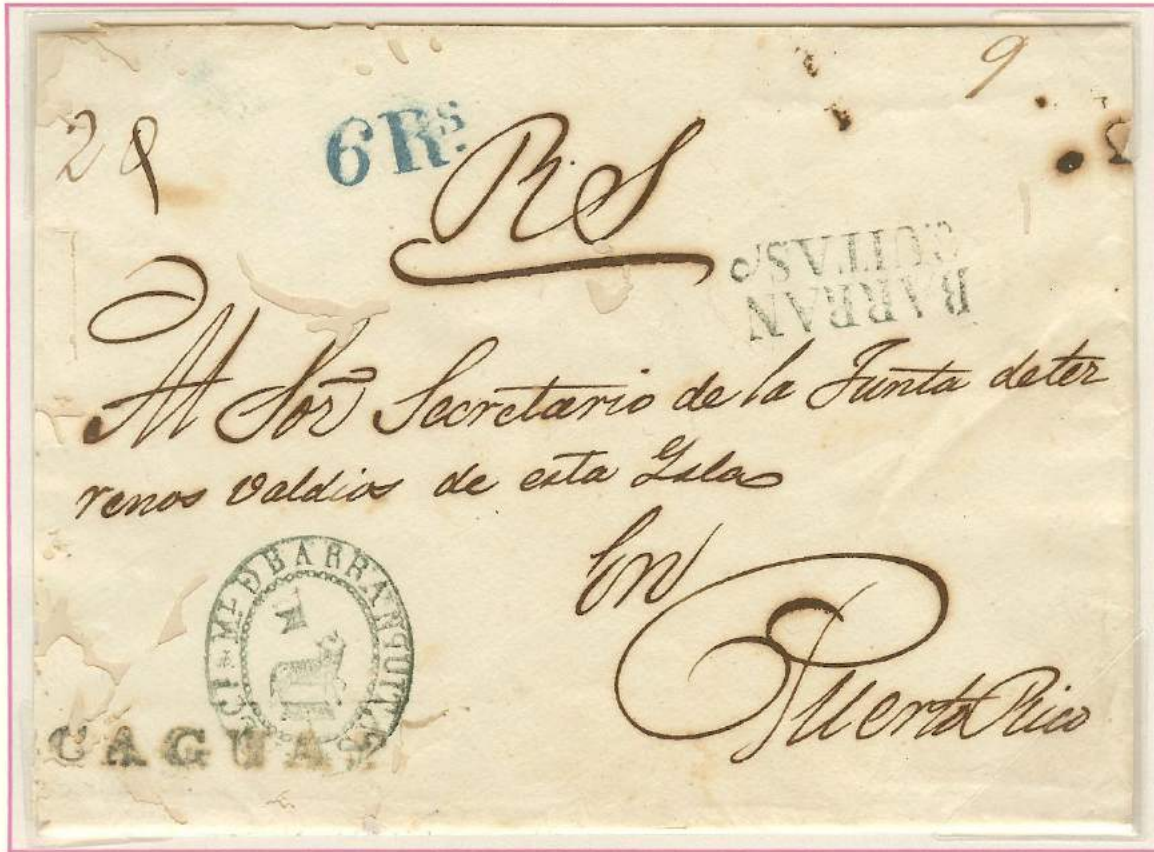 9
28
6 Rs.
R. S
BARRAN
QUITAS
Al Sor Secretario de la Junta de ter
renos valdios de esta Ysla
En
Puerto Rico
Ml D BARRANQUITAS
CAGUAS